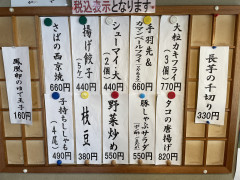 税込表示となります
大粒カキフライ
(3個)
770円
手羽先&
カマンベールフライ
660円
シューマイ・大
(2個)
440円
揚げ餃子
(5ケ)
440円
さばの西京焼
660円
長芋の千切り
330円
タコの唐揚げ
820円
豚しゃぶサラダ
550円
野菜炒め
550円
枝豆
380円
子持ちししゃも
(4尾)
490円
鳳凰卵のゆで玉子
160円